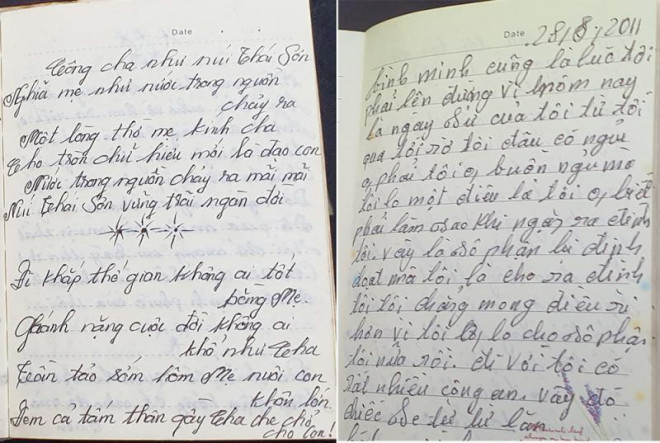 Date
Công cha như núi Thái Sơn
Nghĩa mẹ như nước trong nguồn
chảy ra
Một lòng thờ mẹ kính cha
Cho tròn chữ hiếu mới là đạo con
Nước trong nguồn chảy ra mãi mãi
Núi Thái Sơn vững trãi ngàn đời
Đi khắp thế gian không ai tốt
bằng Mẹ.
Gánh nặng cuộc đời không ai
khổ như Cha
Tần tảo sớm hôm Mẹ nuôi con
khôn lớn
Đem cả tấm thân gầy Cha che chở
cho con!
Date 28/8/2011
bình minh cũng là lúc tôi
phải lên đường vì hôm nay
là ngày sử của tôi từ tối
qua tới giờ tôi đâu có ngủ
phải tôi buồn ngủ mà
tôi lo một điều là tôi biết
phải làm sao khi ngày ra đình
tôi. vậy là số phận bi định
đoạt mà tôi là cho ra đình
tôi tôi chẳng mong điều gì
hơn vì tôi lo cho số phận
tôi nữa rồi. đi với tôi có
rất nhiều công an. vậy đó
chiếc se từ từ lăn